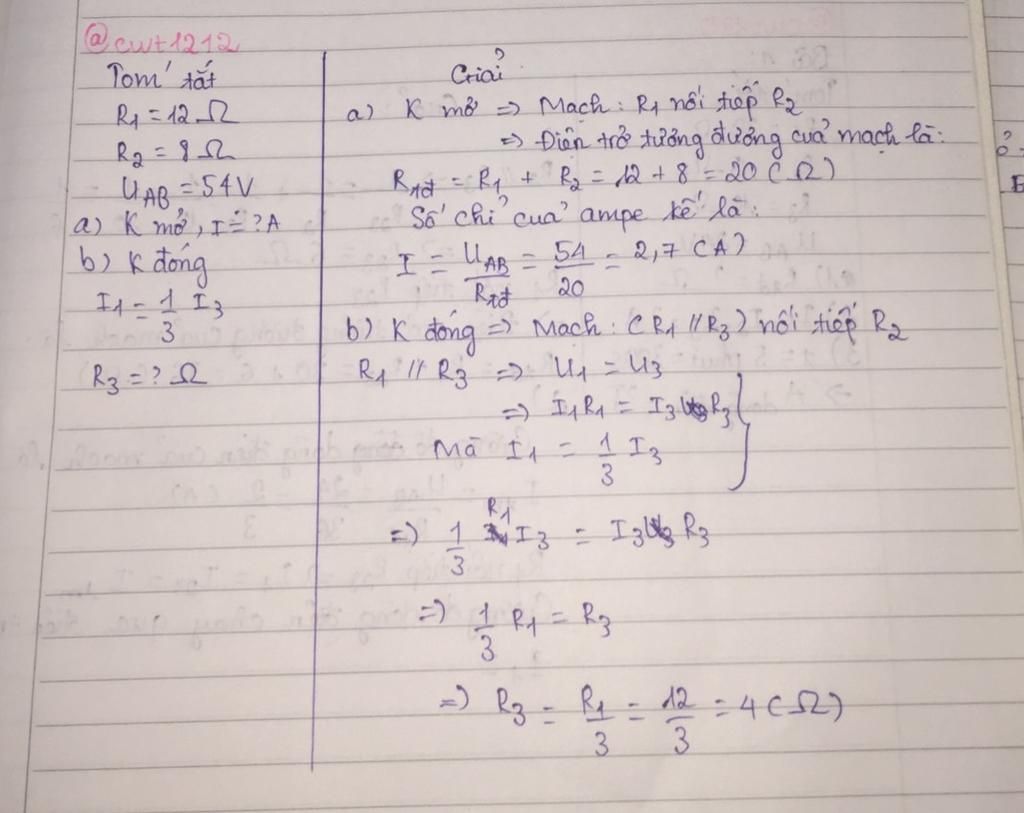 @cwt1212
Tóm tắt
R1 = 12 Ω
R2 = 8 Ω
UAB = 54V
a) K mở, I = ? A
b) K đóng
I1 = 1/3 I3
R3 = ? Ω
Giải
a) K mở => Mạch: R1 nối tiếp R2
=> Điện trở tương đương của mạch là:
Rtđ = R1 + R2 = 12 + 8 = 20 (Ω)
Số chỉ của ampe kế là:
I = UAB/Rtđ = 54/20 = 2,7 (A)
b) K đóng => Mạch: (R1 // R3) nối tiếp R2
R1 // R3 => U1 = U3
=> I1R1 = I3R3
Mà I1 = 1/3 I3
=> 1/3 R1 I3 = I3 R3
=> 1/3 R1 = R3
=> R3 = R1/3 = 12/3 = 4 (Ω)